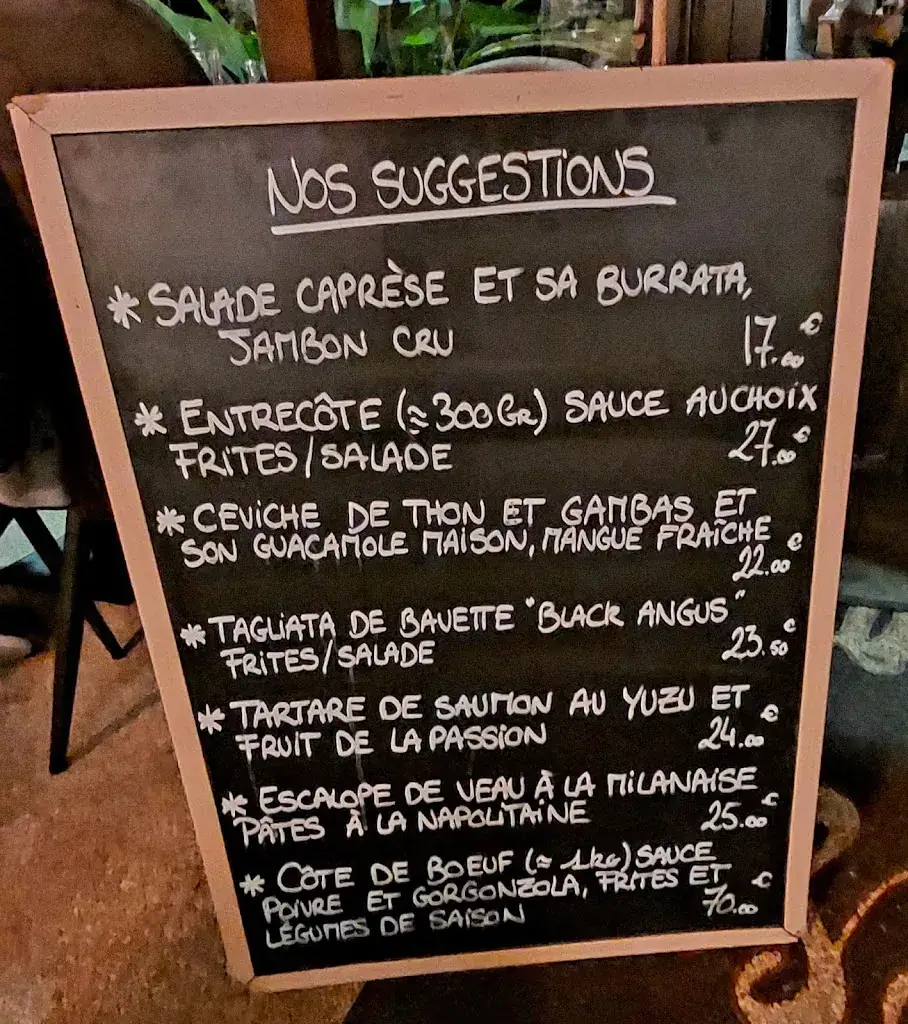 NOS SUGGESTIONS
* SALADE CAPRÈSE ET SA BURRATA,
JAMBON CRU 17.00€
* ENTRECÔTE (≈300Gr) SAUCE AU CHOIX
FRITES/SALADE 27.00€
* CEVICHE DE THON ET GAMBAS ET
SON GUACAMOLE MAISON, MANGUE FRAÎCHE
22.00€
* TAGLIATA DE BAVETTE "BLACK ANGUS"
FRITES/SALADE 23.50€
* TARTARE DE SAUMON AU YUZU ET
FRUIT DE LA PASSION 24.00€
* ESCALOPE DE VEAU À LA MILANAISE
PÂTES À LA NAPOLITAINE 25.00€
* CÔTE DE BOEUF (≈ 1kg) SAUCE
POIVRE ET GORGONZOLA, FRITES ET
LÉGUMES DE SAISON 70.00€